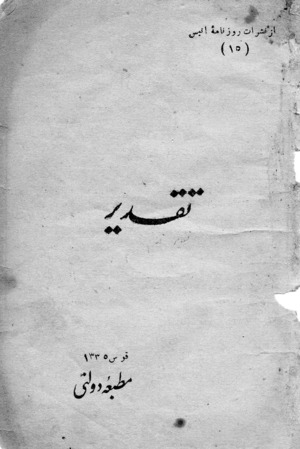 از نشرات روزنامهٔ انیس
(۱۵)
تقدیر
قوس ۱۳۳۵
مطبعهٔ دولتی